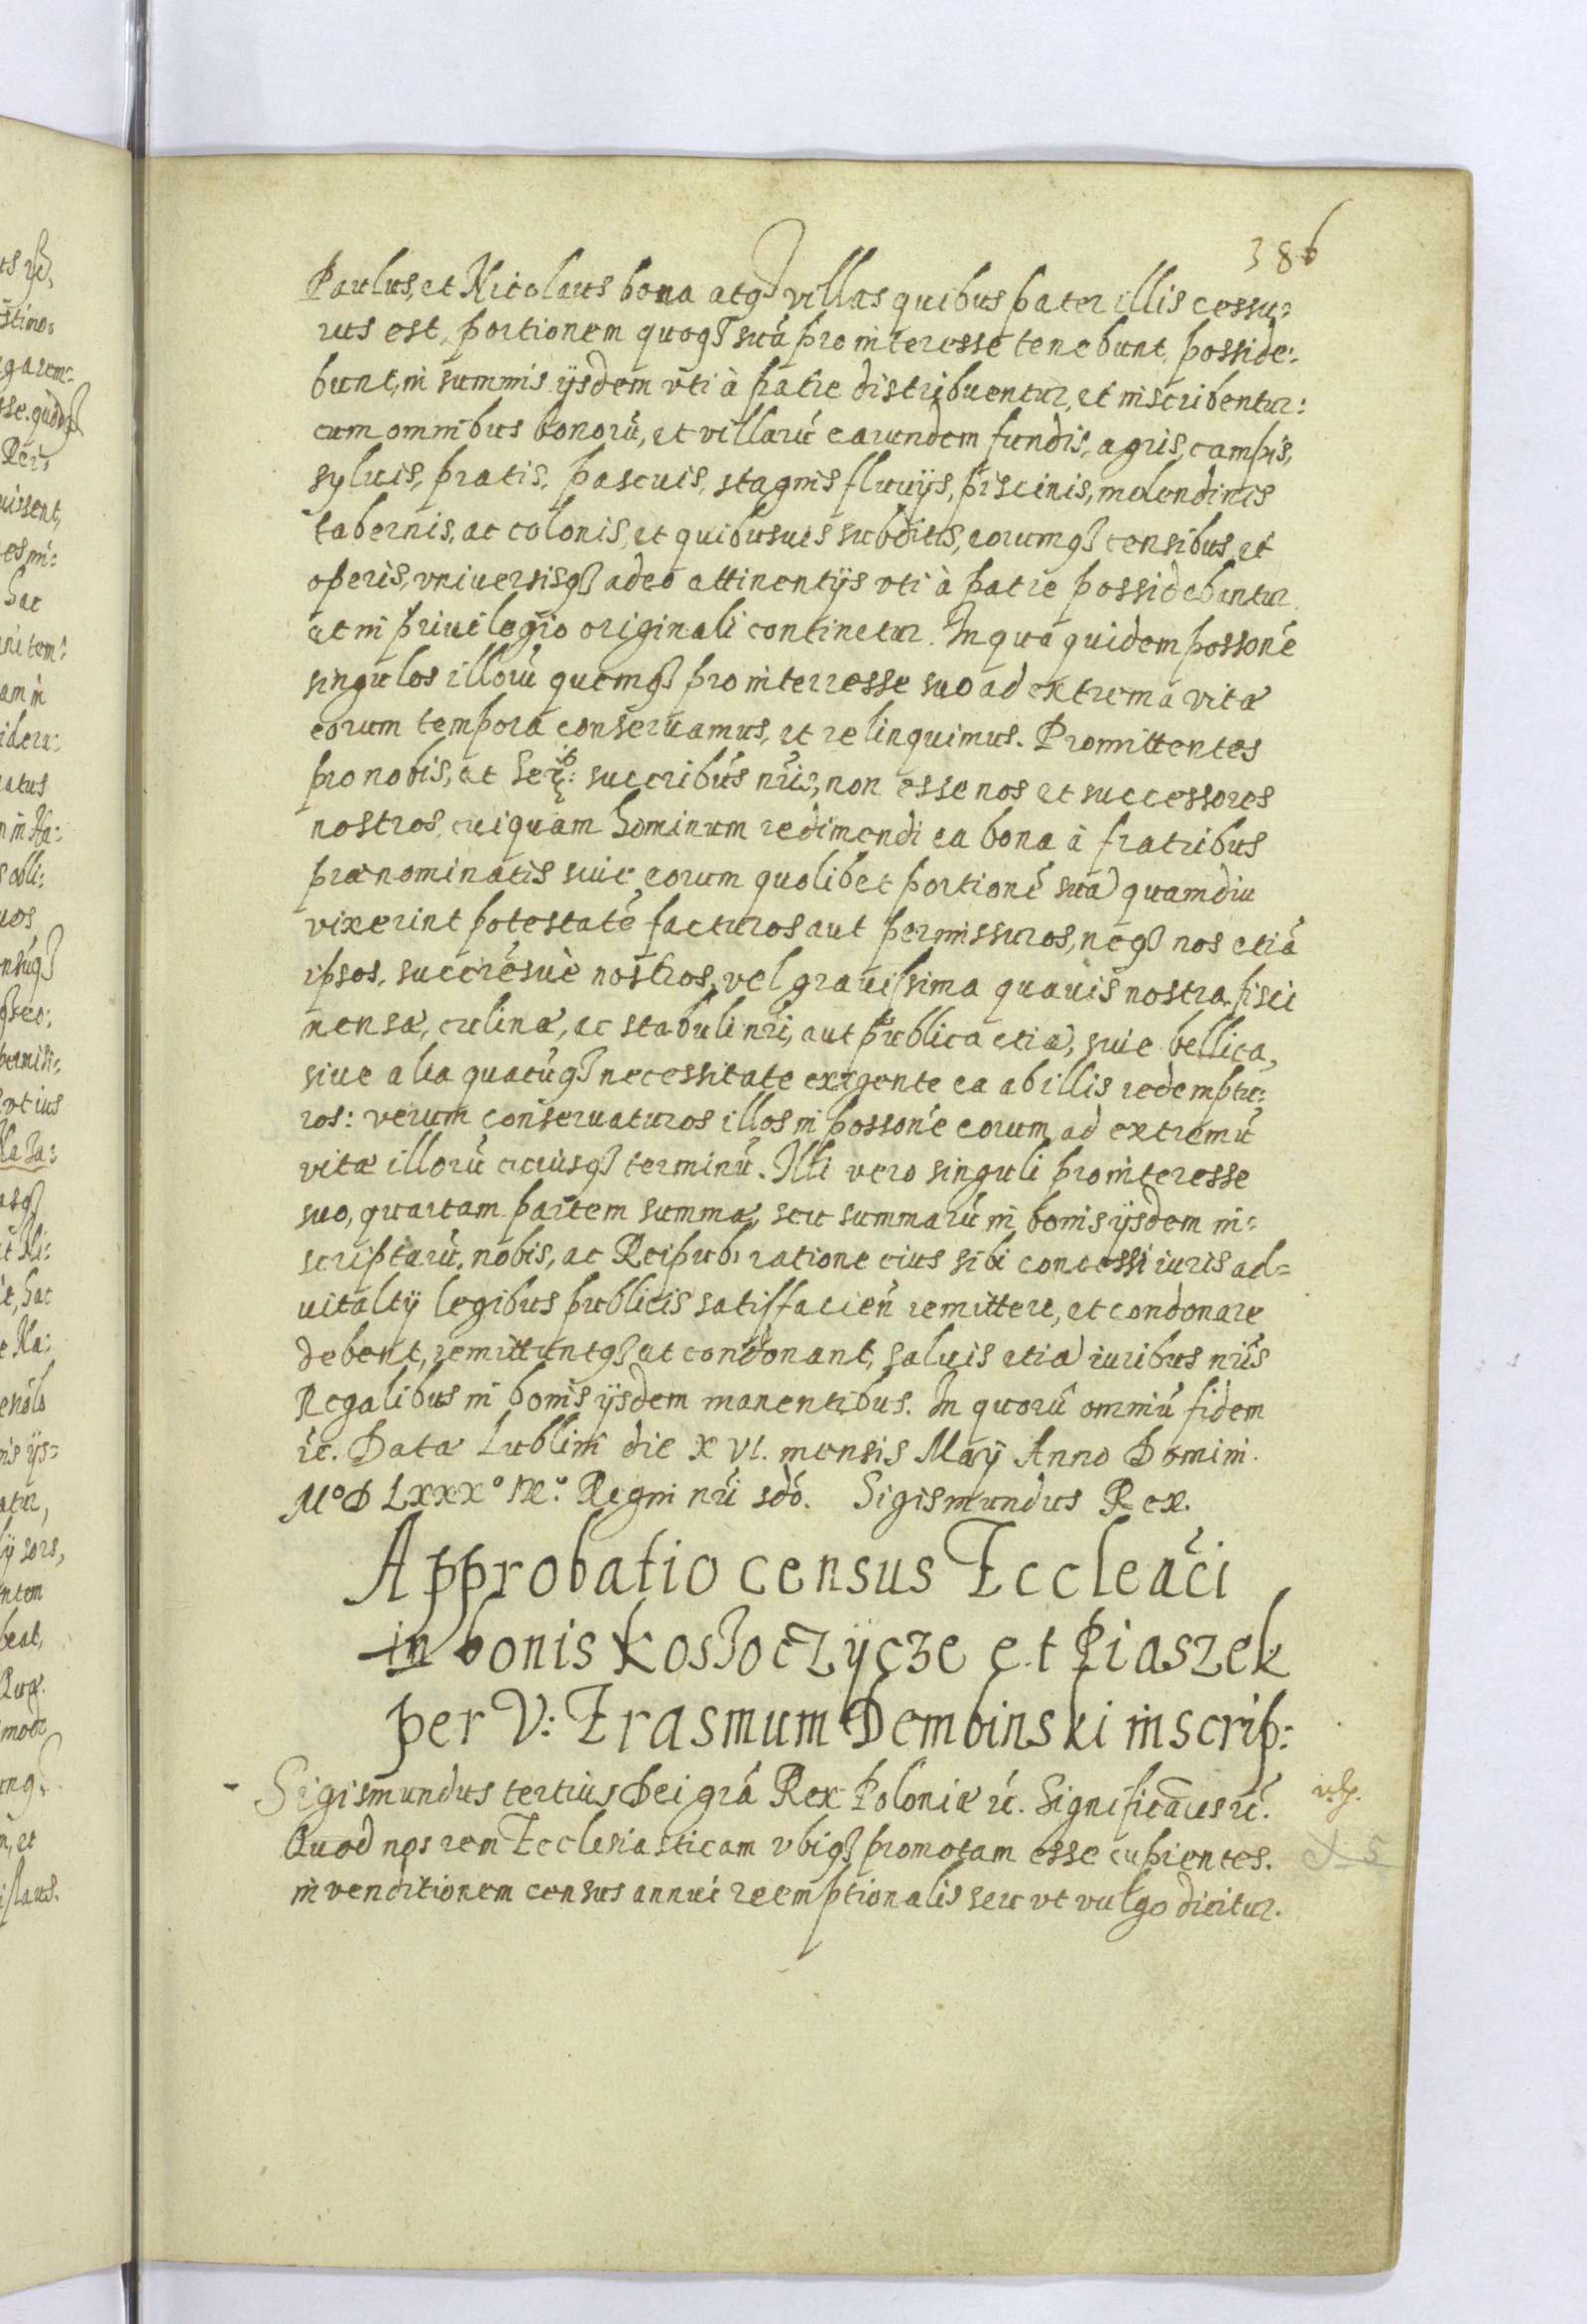 386
Paulus, et Nicolaus bona atq3 villas quibus pater illis cessu=
rus est, portionem quoq3 suá pro interesse tenebunt, posside:
bunt, in summis ijsdem vti à patre distribuentur, et inscribentur:
cum omnibus bonorú, et villarú earundem fundis, agris, campis,
syluis, pratis, pascuis, stagnis fluuijs, piscinis, molendinis
tabernis, ac colonis, et quibusuis subditis, eorumq3 censibus, et
operis, vniuersisq3 adeo attinentijs vti à patre possidebantur
et in priuilegio originali continetur. In qua quidem possoné
singulos illorú quemq3 pro interresse suo ad extrema vitæ
eorum tempora conseruamus, et relinquimus. Promittentes
pro nobis, et Ser: succribús nris, non esse nos et successores
nostros, cuiquam hominum redimendi ea bona à fratribus
prænominatis siue eorum quolibet portioné suá quamdiu
vixerint potestaté facturos aut permissuros, neq3 nos etiá
ipsos, succrésuè nostros, vel grauissima quauis nostra, fisci
mensæ, culinæ, ac stabuli nri, aut publica etiá, siue bellica,
siue alia quacúq3 necessitate exigente ea ab illis redemptu:
ros: verum conseruaturos illos in possoné eorum ad extremú
vitæ illorú cuiusq3 terminú. Illi vero singuli pro interesse
suo, quartam partem summæ, seu summarú in bonis ijsdem in=
scriptarú, nobis, ac Reipub: ratione eius sibi concessi iuris ad=
uitalij legibus publicis satisfacień remittere, et condonare
debent, remittuntq3 et condonant, saluis etiá iuribus nris
Regalibus in bonis ijsdem manentibus. In quorú omniú fidem
rc. Datæ Lublini die XVI. mensis Maij Anno Domini.
M°D LXXX° IX°. Regni nri sdó. Sigismundus Rex.
Approbatio census Eccleáci
in bonis Koszoczÿcze et Piaszek
per V: Erasmum Dembinski inscrip:
Sigismundus tertius Dei grá Rex Poloniæ rc. Significamus rc.
Quod nos rem Ecclesiasticam vbiq3 promotam esse cupientes.
in venditionem census annui reemptionalis seu vt vulgo dicitur.